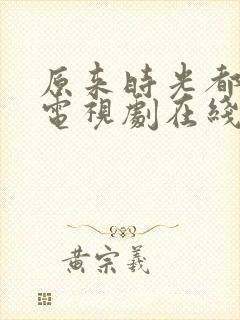 原来時光都
電視劇在綫
黄宗羲